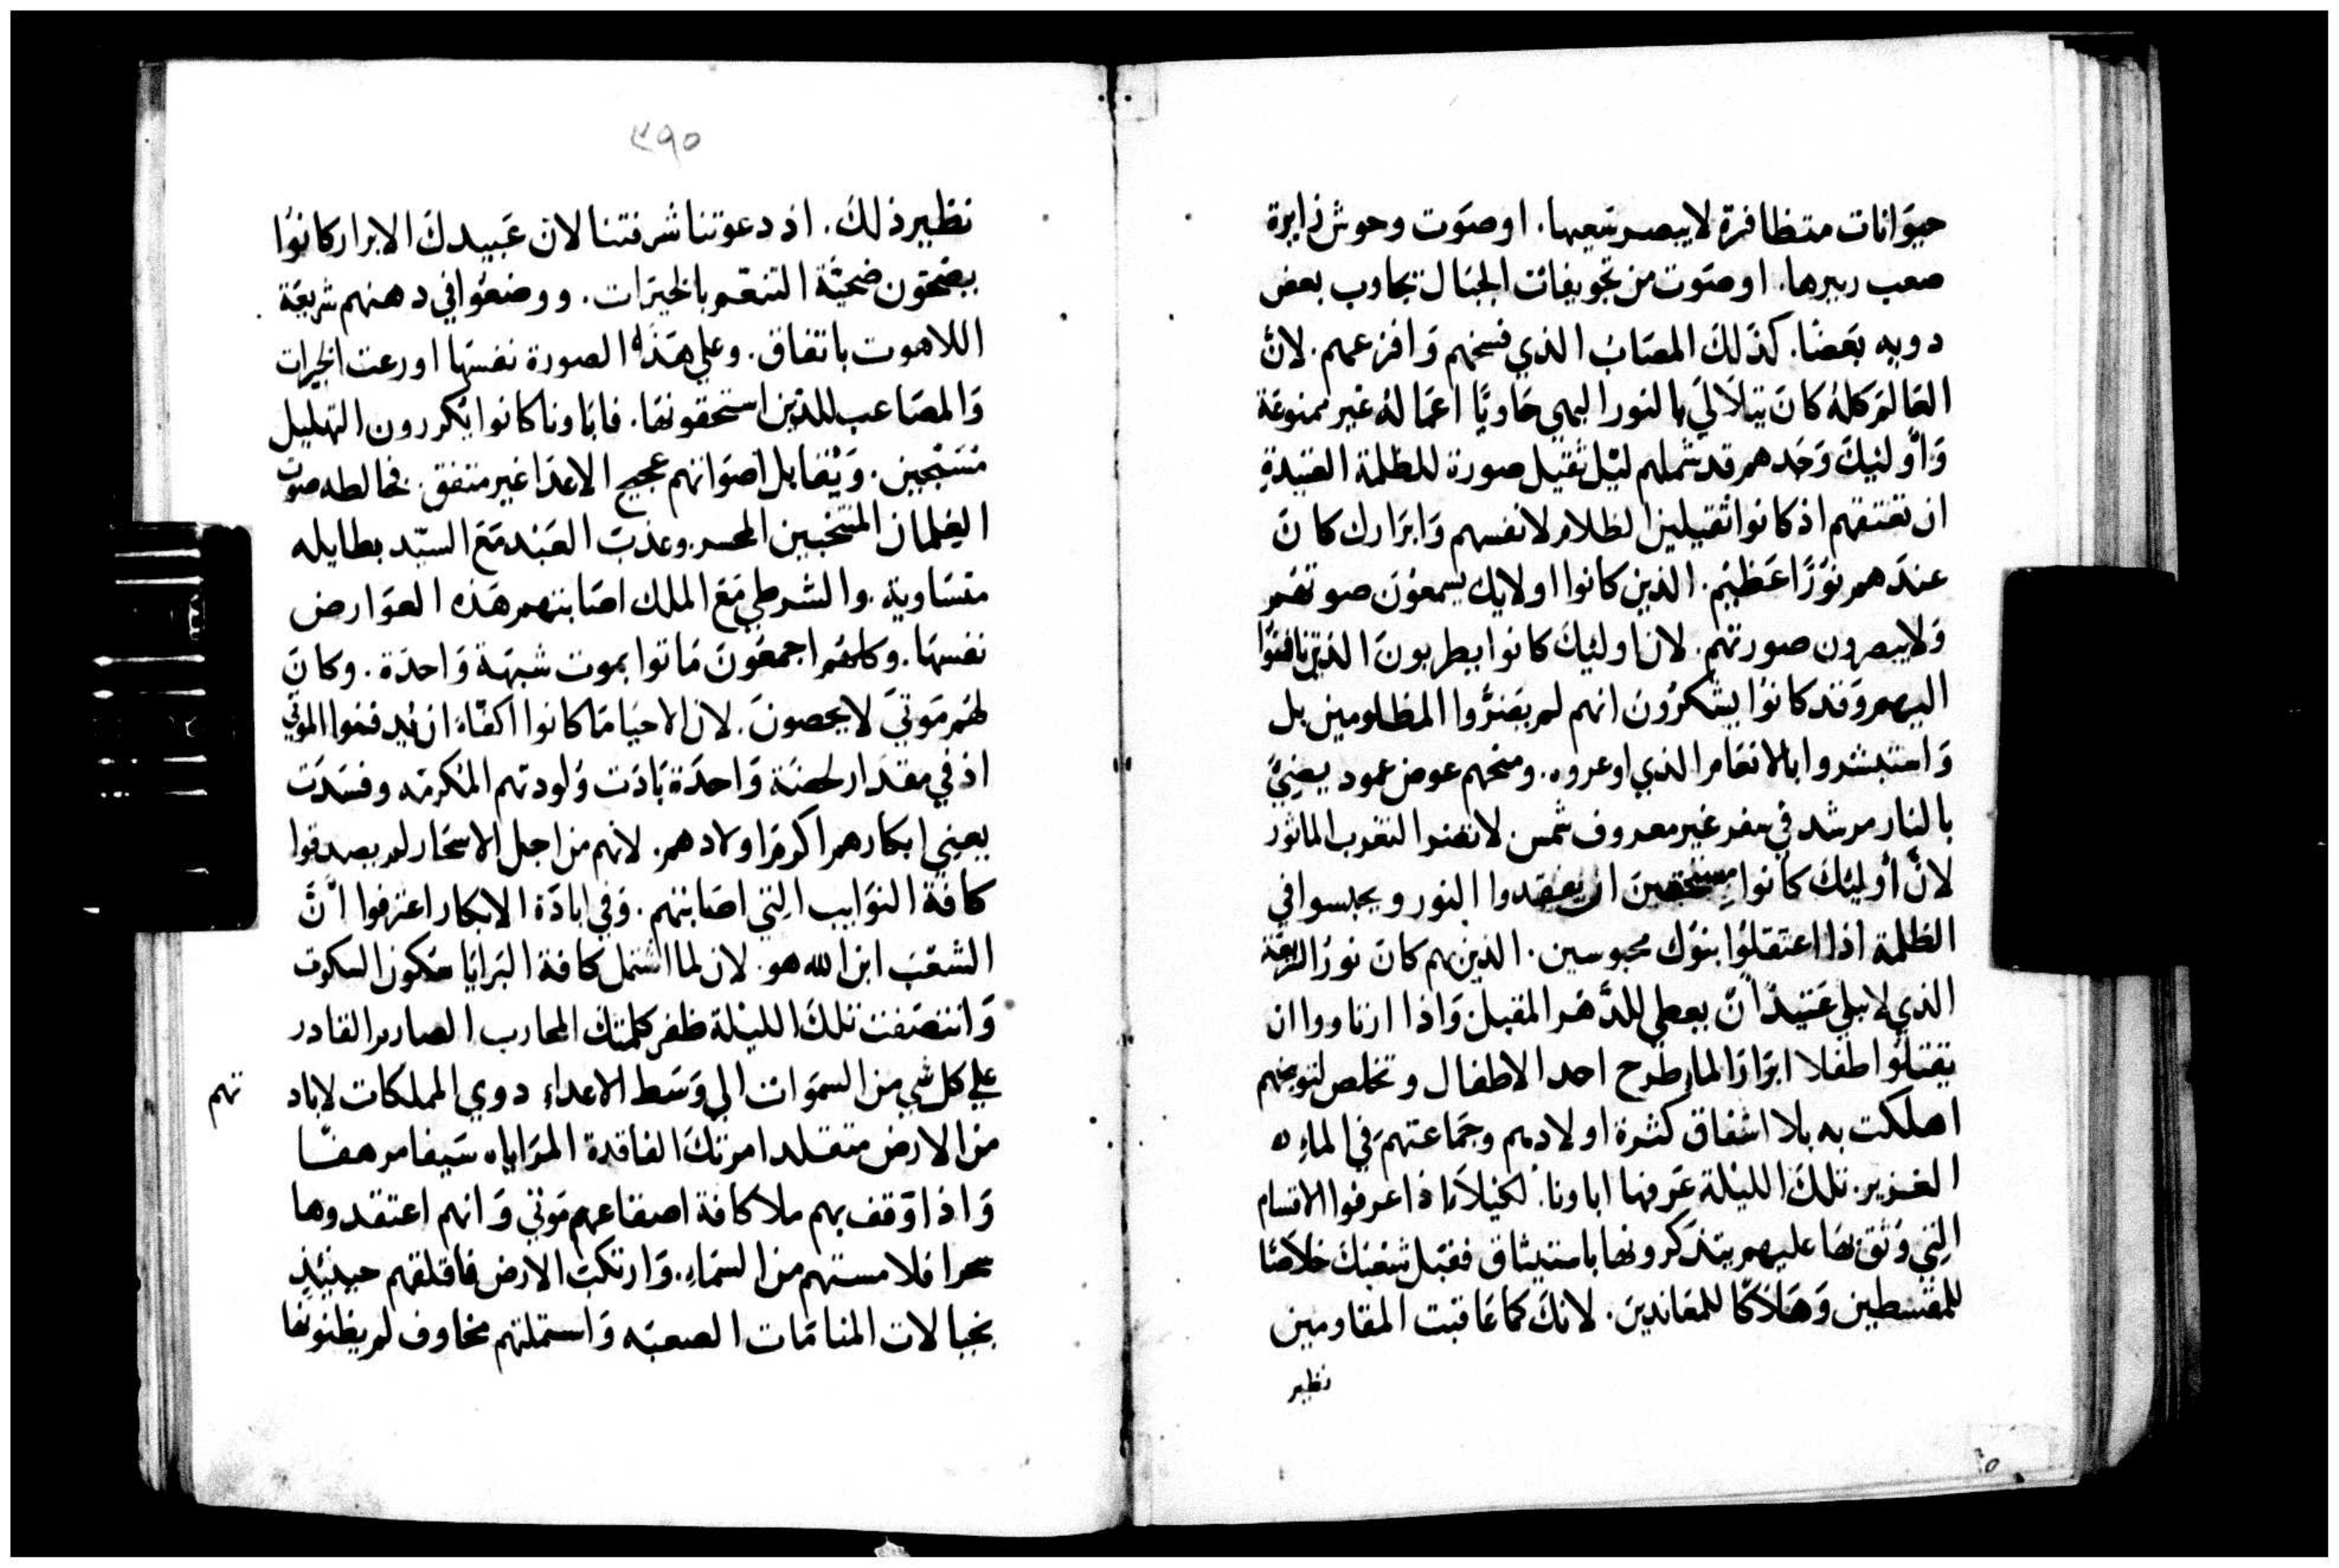 حيوانات متظافرة لا يبصر سعيها. او صوت وحوش زايرة
صعب ربيرها. او صوت من تجويفات الجبال تجاوب بعض
دويه بعضا. كذلك المصاب الذي فسخهم وافزعهم. لان
العالم كله كان يتلالي بالنور البهي حاويا اعماله غير ممنوعة
واولئيك وحدهم قد شملهم ليل ثقيل صورة للظلمة العتيدة
ان تعتنقهم اذ كانوا ثقيلين الظلام لانفسهم وابرارك كان
عندهم نورا عظيم. الذين كانوا اولايك يسمعون صوتهم
ولا يبصرون صورتهم. لان اولئيك كانوا يطربون الذين نافقوا
اليهم وقد كانوا يشكرون انهم لم يضروا المظلومين بل
واستبشروا بالانعام الذي اوعروه. ومنحهم عوض عمود يضيئ
بالنار مرشد في سفر غير معروف شمس لا تضر التغرب الماثور
لان أوليئك كانوا مستحقين ان يفقدوا النور ويحبسوا في
الظلمة اذا اعتقلوا بنوك محبوسين. الذين بهم كان نور الشريعة
الذي لا يبلي عتيدا ان يعطي للدهر المقبل واذا ارتاووا ان
يقتلوا اطفلا ابرارا لما طرح احد الاطفال وتخلص لتوبيخهم
اهلكت به بلا اشفاق كثرة اولادهم وجماعتهم في الماء
الغزير. تلك الليلة عرفها اباونا. لكيلا اذا عرفوا الاقسام
التي وثق بها عليهم يتذكرونها باستيثاق فقبل شعبك خلاصا
للمقسطين وهلاكا للمعاندين. لانك كما عاقبت المقاومين
نظير
٣٩٥
نظير ذلك. اذ دعوتنا شرفتنا لان عبيدك الابرار كانوا
يضحون ضحية التنعم بالخيرات. ووضعوا في دهنهم شريعة
اللاهوت باتفاق. وعلي هذه الصورة نفسها اورعت الخيرات
والمصاعب للذين استحقونها. فاباونا كانوا يكررون التهليل
مسبحين. ويقابل اصواتهم عجيج الاعدا غير متفق. فخالطه صوت
الغلمان المنتحبين المحسر. وعذب العبد مع السيد بطايله
متساوية. والشرطي مع الملك اصابتهم هذه العوارض
نفسها. وكلهم اجمعون ماتوا بموت شبهة واحدة. وكان
لهم موتي لا يحصون. لان الاحيا ما كانوا اكفاء ان يدفنوا الموتي
اذ في مقدار لحضة واحدة بادت ولودتهم المكرمه وفسدت
يعني ابكارهم اكرم اولادهم. لانهم من اجل الاسحار لم يصدقوا
كافة النوايب التي اصابتهم. وفي ابادة الابكار اعترفوا ان
الشعب ابن الله هو. لان لما اشتمل كافة البرايا سكون السكوت
وانتصفت تلك الليلة ظفر كلمتك المحارب الصارم القادر
علي كل شي من السموات الي وسط الاعداء دوي المملكات لاباد
تهم
من الارض متقلدا امرتك الفاقدة المراياه سيفا مرهفا
واذا وقف بهم ملا كافة اصقاعهم موتي وانهم اعتقدوها
سحرا فلامستهم من السماء. وارتكبت الارض فاقلقهم حينيذ
بخيالات المنامات الصعبه واستملتهم مخاوف لم يظنونها